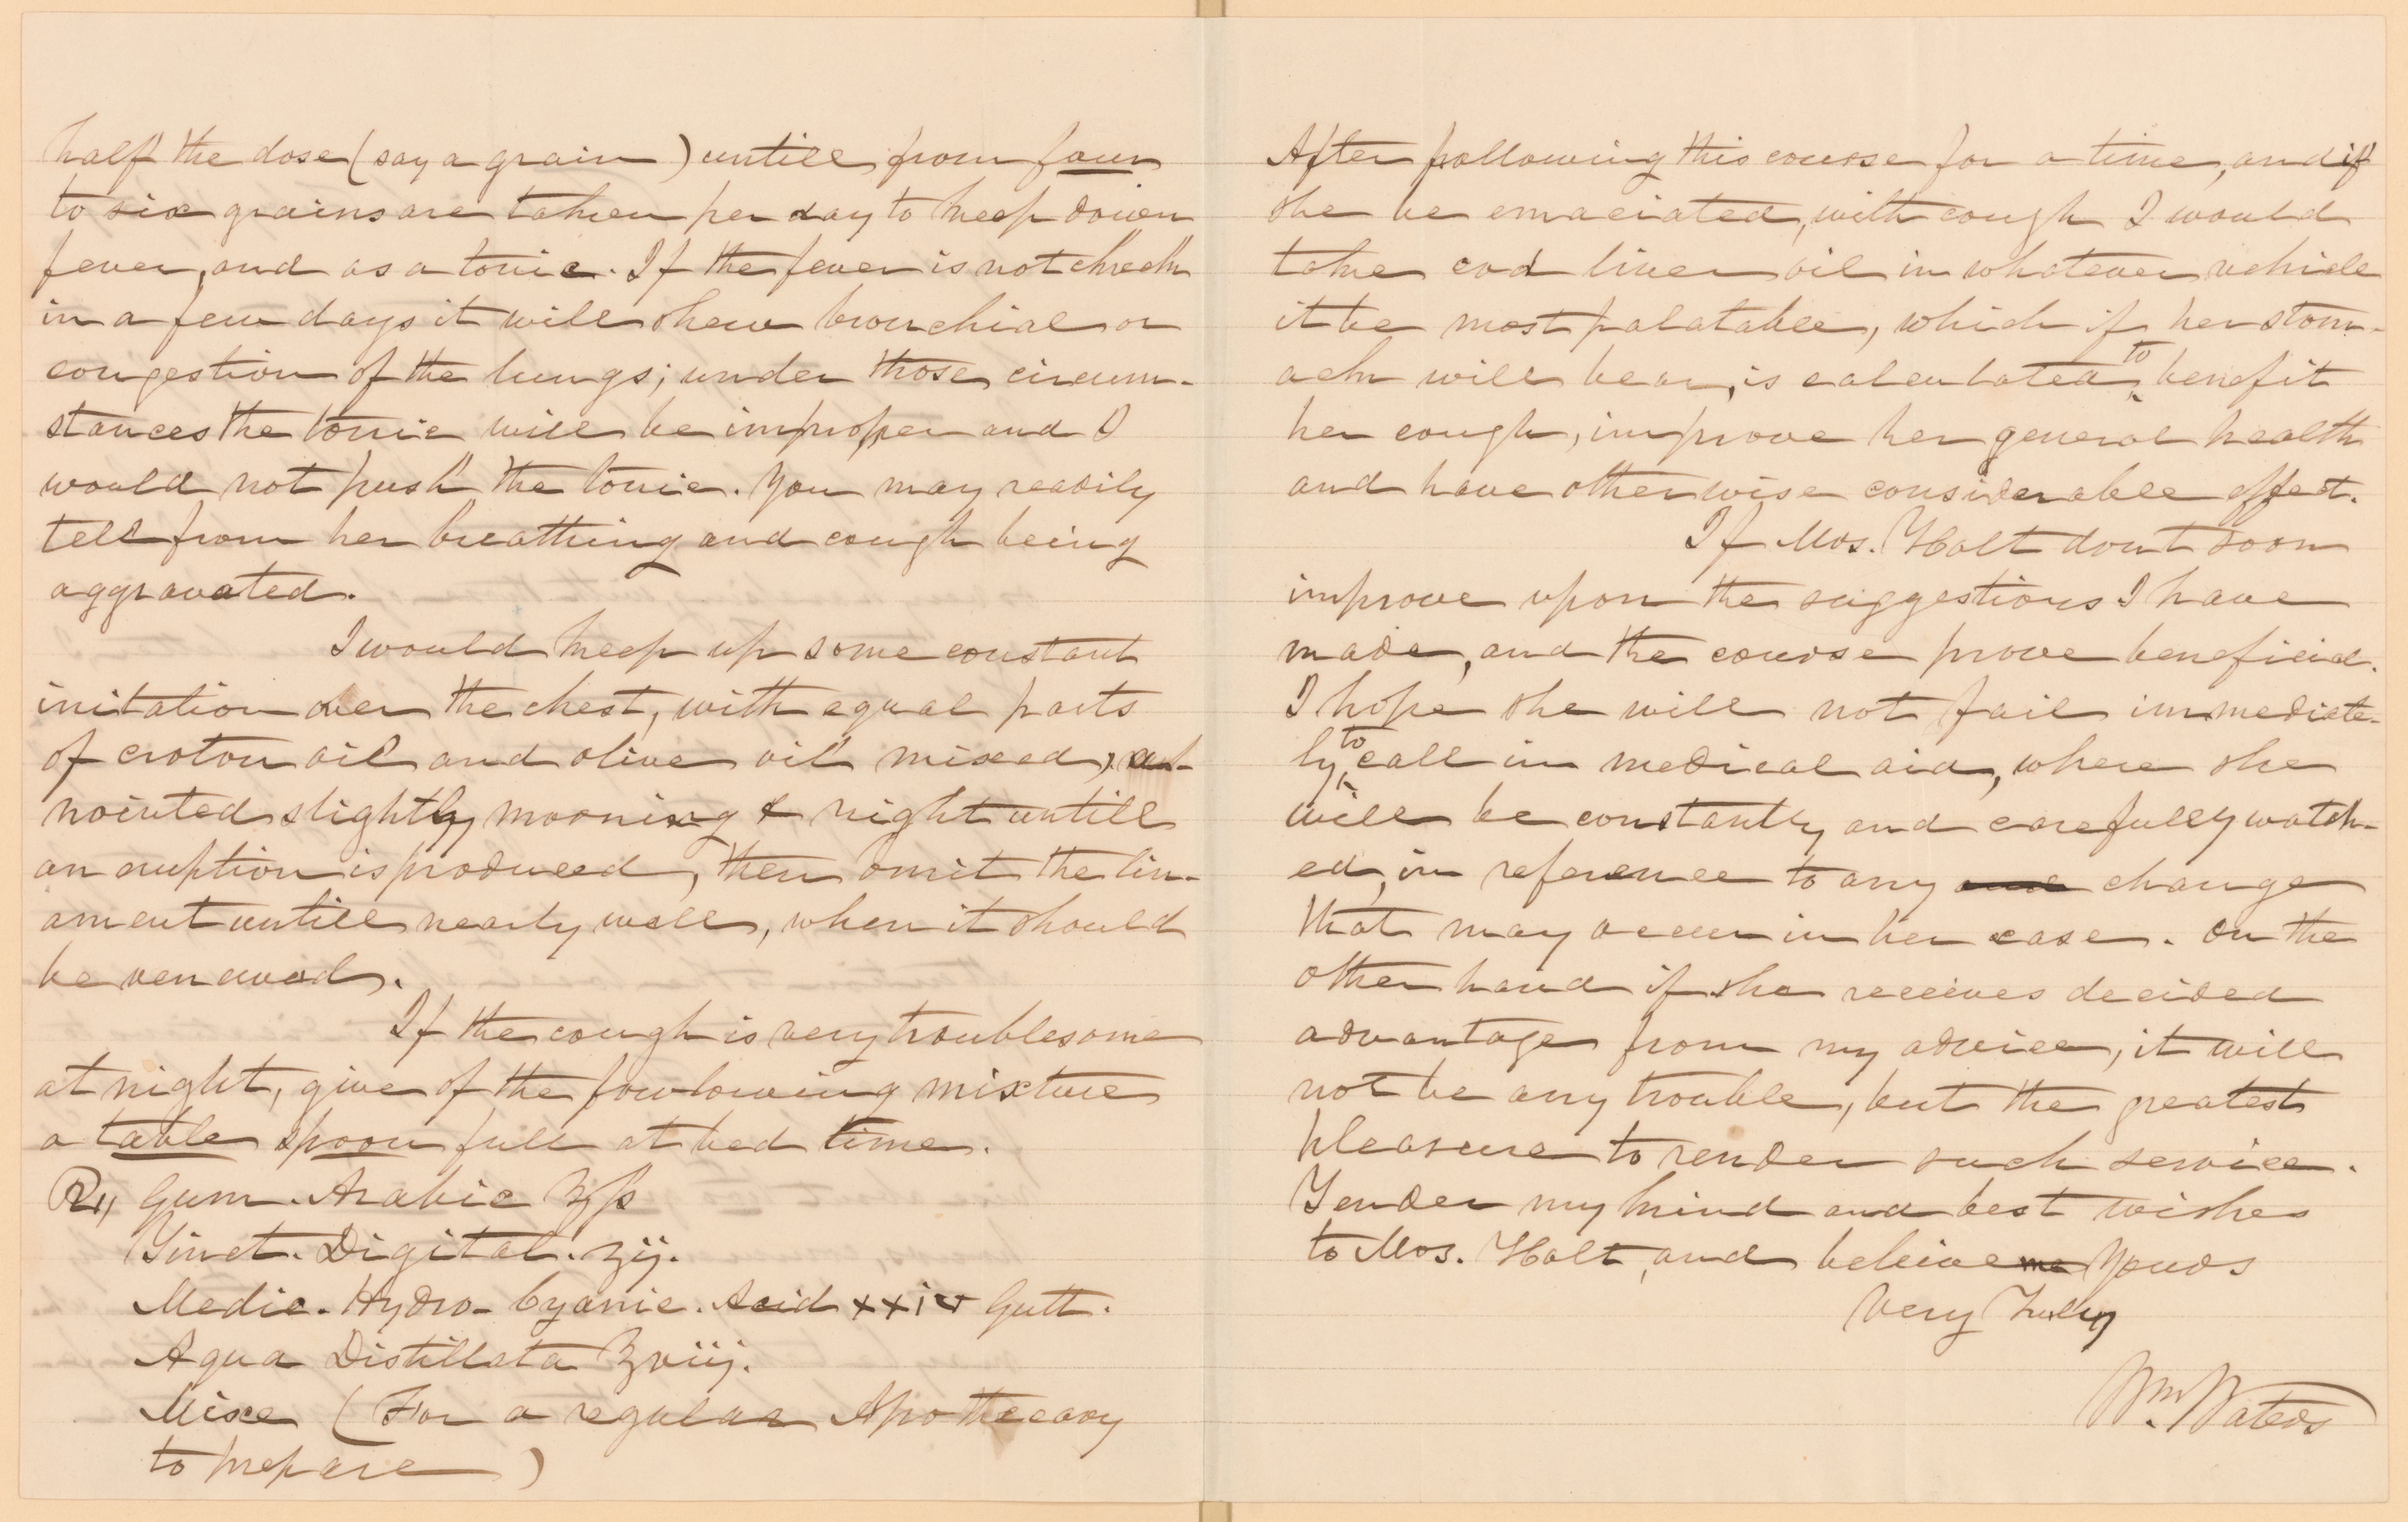 half the dose (say a grain) untill from four
to six grains are taken per day to keep down
fever, and as a tonic. If the fever is not check
in a few days it will shew bronchial or
congestion of the lungs; under those circum-
stances the tonic will be improper and I
would not push the tonic. You may readily
tell from her breathing and cough being
aggravated.
I would keep up some constant
irritation over the chest, with equal parts
of croton oil and olive oil mixed, an-
nointed slightly morning & night untill
an eruption is produced, then omit the lin-
ament untill nearly well, when it should
be renewed.
If the cough is very troublesome
at night, give of the fowlowing mixture
a table spoon full at bed time.
Rx Gum. Arabic ℥ſs
Tinct. Digital. ʒij.
Medic. Hydro-Cyanic. Acid xxiv Gutt.
Aqua Distillata ℥viij.
Mixe (For a regular Apothecary
to prepare)
After following this course for a time, and if
she be emaciated, with cough I would
take cod liver oil in whatever vehicle
it be most palatable, which if her stom-
ach will bear, is calculated to benefit
her cough, improve her general health
and have otherwise considerable effect.
If Mrs. Holt dont soon
improve upon the suggestions I have
made, and the course prove beneficial.
I hope she will not fail immediate-
ly to call in medical aid, where she
will be constantly and carefully watch-
ed, in reference to any change
that may occur in her case. On the
other hand if she receives decided
advantage from my advice, it will
not be any trouble, but the greatest
pleasure to render such service.
Tender my kind and best wishes
to Mrs. Holt, and beleive me Yours
Very Truly
Wm. Waters